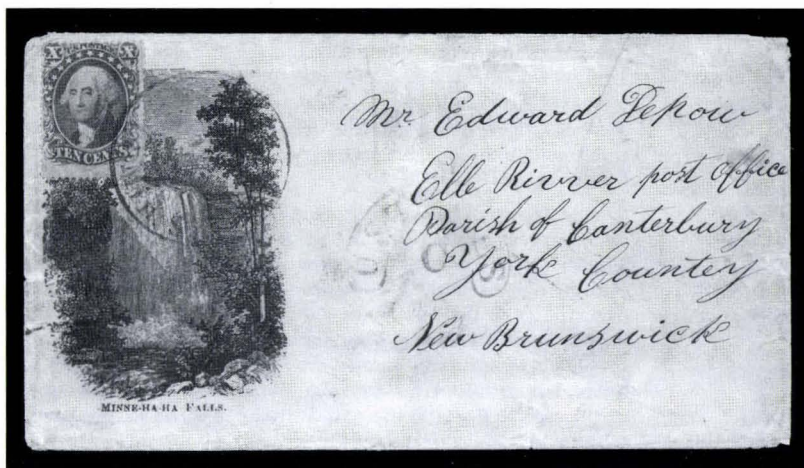 X U.S. POSTAGE X
TEN CENTS
MINNE-HA-HA FALLS.
Mr. Edward Depow
Elle Rivver post office
Parish of Canterbury
York Countey
New Brunswick